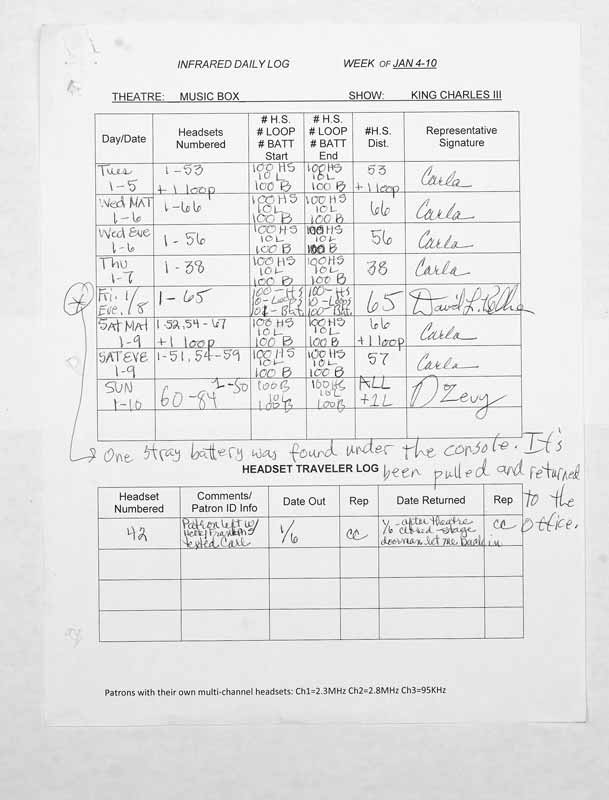 INFRARED DAILY LOG WEEK OF JAN 4-10
THEATRE: MUSIC BOX SHOW: KING CHARLES III
Day/Date Headsets Numbered # H.S. # LOOP # BATT Start # H.S. # LOOP # BATT End #H.S. Dist. Representative Signature
Tues 1-5 1-53 +1 loop 100 HS 10 L 100 B 100 HS 10 L 100 B 53 +1 loop Carla
Wed MAT 1-6 1-66 100 HS 10 L 100 B 100 HS 10 L 100 B 66 Carla
Wed Eve 1-6 1-56 100 HS 10 L 100 B 100 HS 10 L 100 B 56 Carla
Thu 1-7 1-38 100 HS 10 L 100 B 100 HS 10 L 100 B 38 Carla
Fri. 1/8 Eve. 1-65 100-HS 10-Loops 101-Bat. 100-HS 10-Loops 100-Bat. 65 David L.
SAT MAT 1-9 1-52, 54-67 +1 loop 100 HS 10 L 100 B 100 HS 10 L 100 B 66 +1 loop Carla
SAT EVE 1-9 1-51, 54-59 100 HS 10 L 100 B 100 HS 10 L 100 B 57 Carla
SUN 1-10 1-50 60-84 100 B 10 L 100 B 100 HS 10 L 100 B ALL +1L D Zevy
One stray battery was found under the console. It's been pulled and returned to the office.
HEADSET TRAVELER LOG
Headset Numbered Comments/ Patron ID Info Date Out Rep Date Returned Rep
42 Patron left w/ 1/6 CC 1/6 -after theatre closed -stage doorman let me back in CC
Patrons with their own multi-channel headsets: Ch1=2.3MHz Ch2=2.8MHz Ch3=95KHz